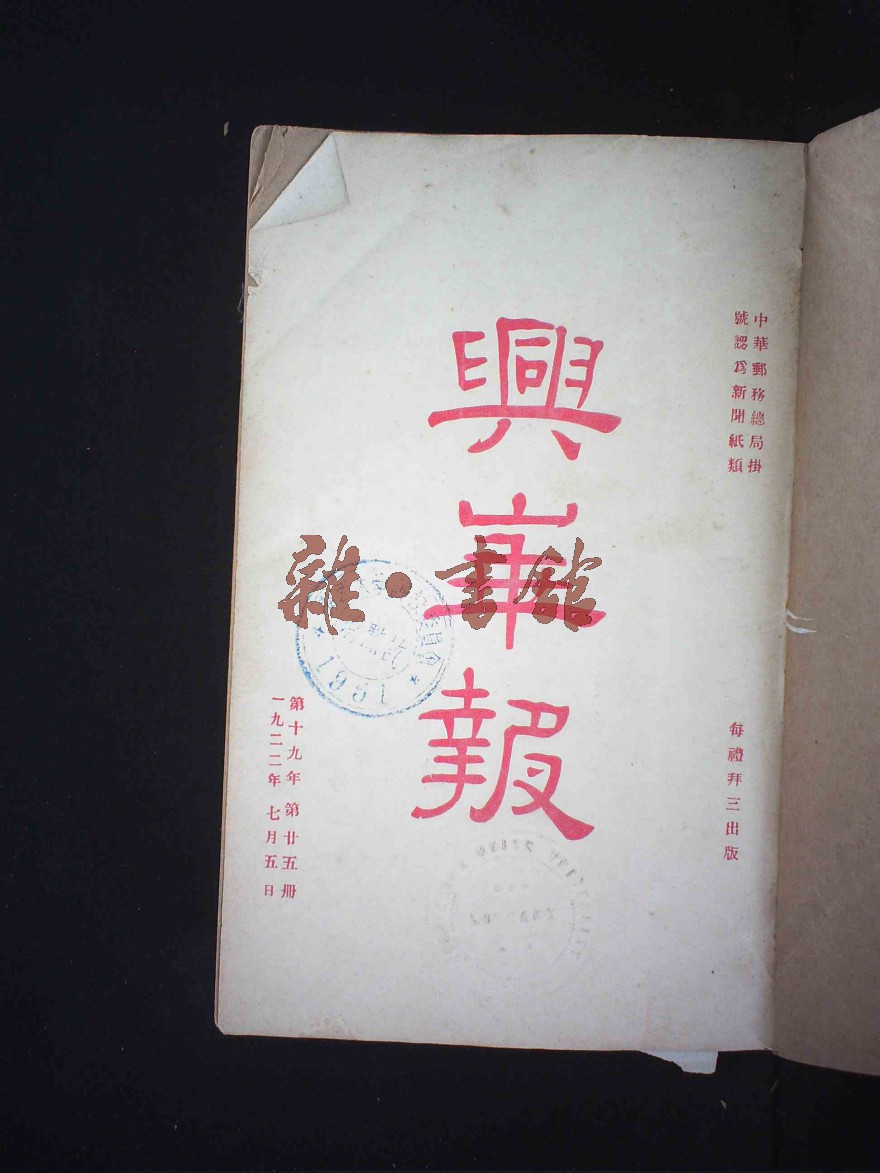 中華郵務總局掛
號認爲新聞紙類
每禮拜三出版
興華報
雜·書館
第十九年 第廿五冊
一九二二年 七月五日
1961